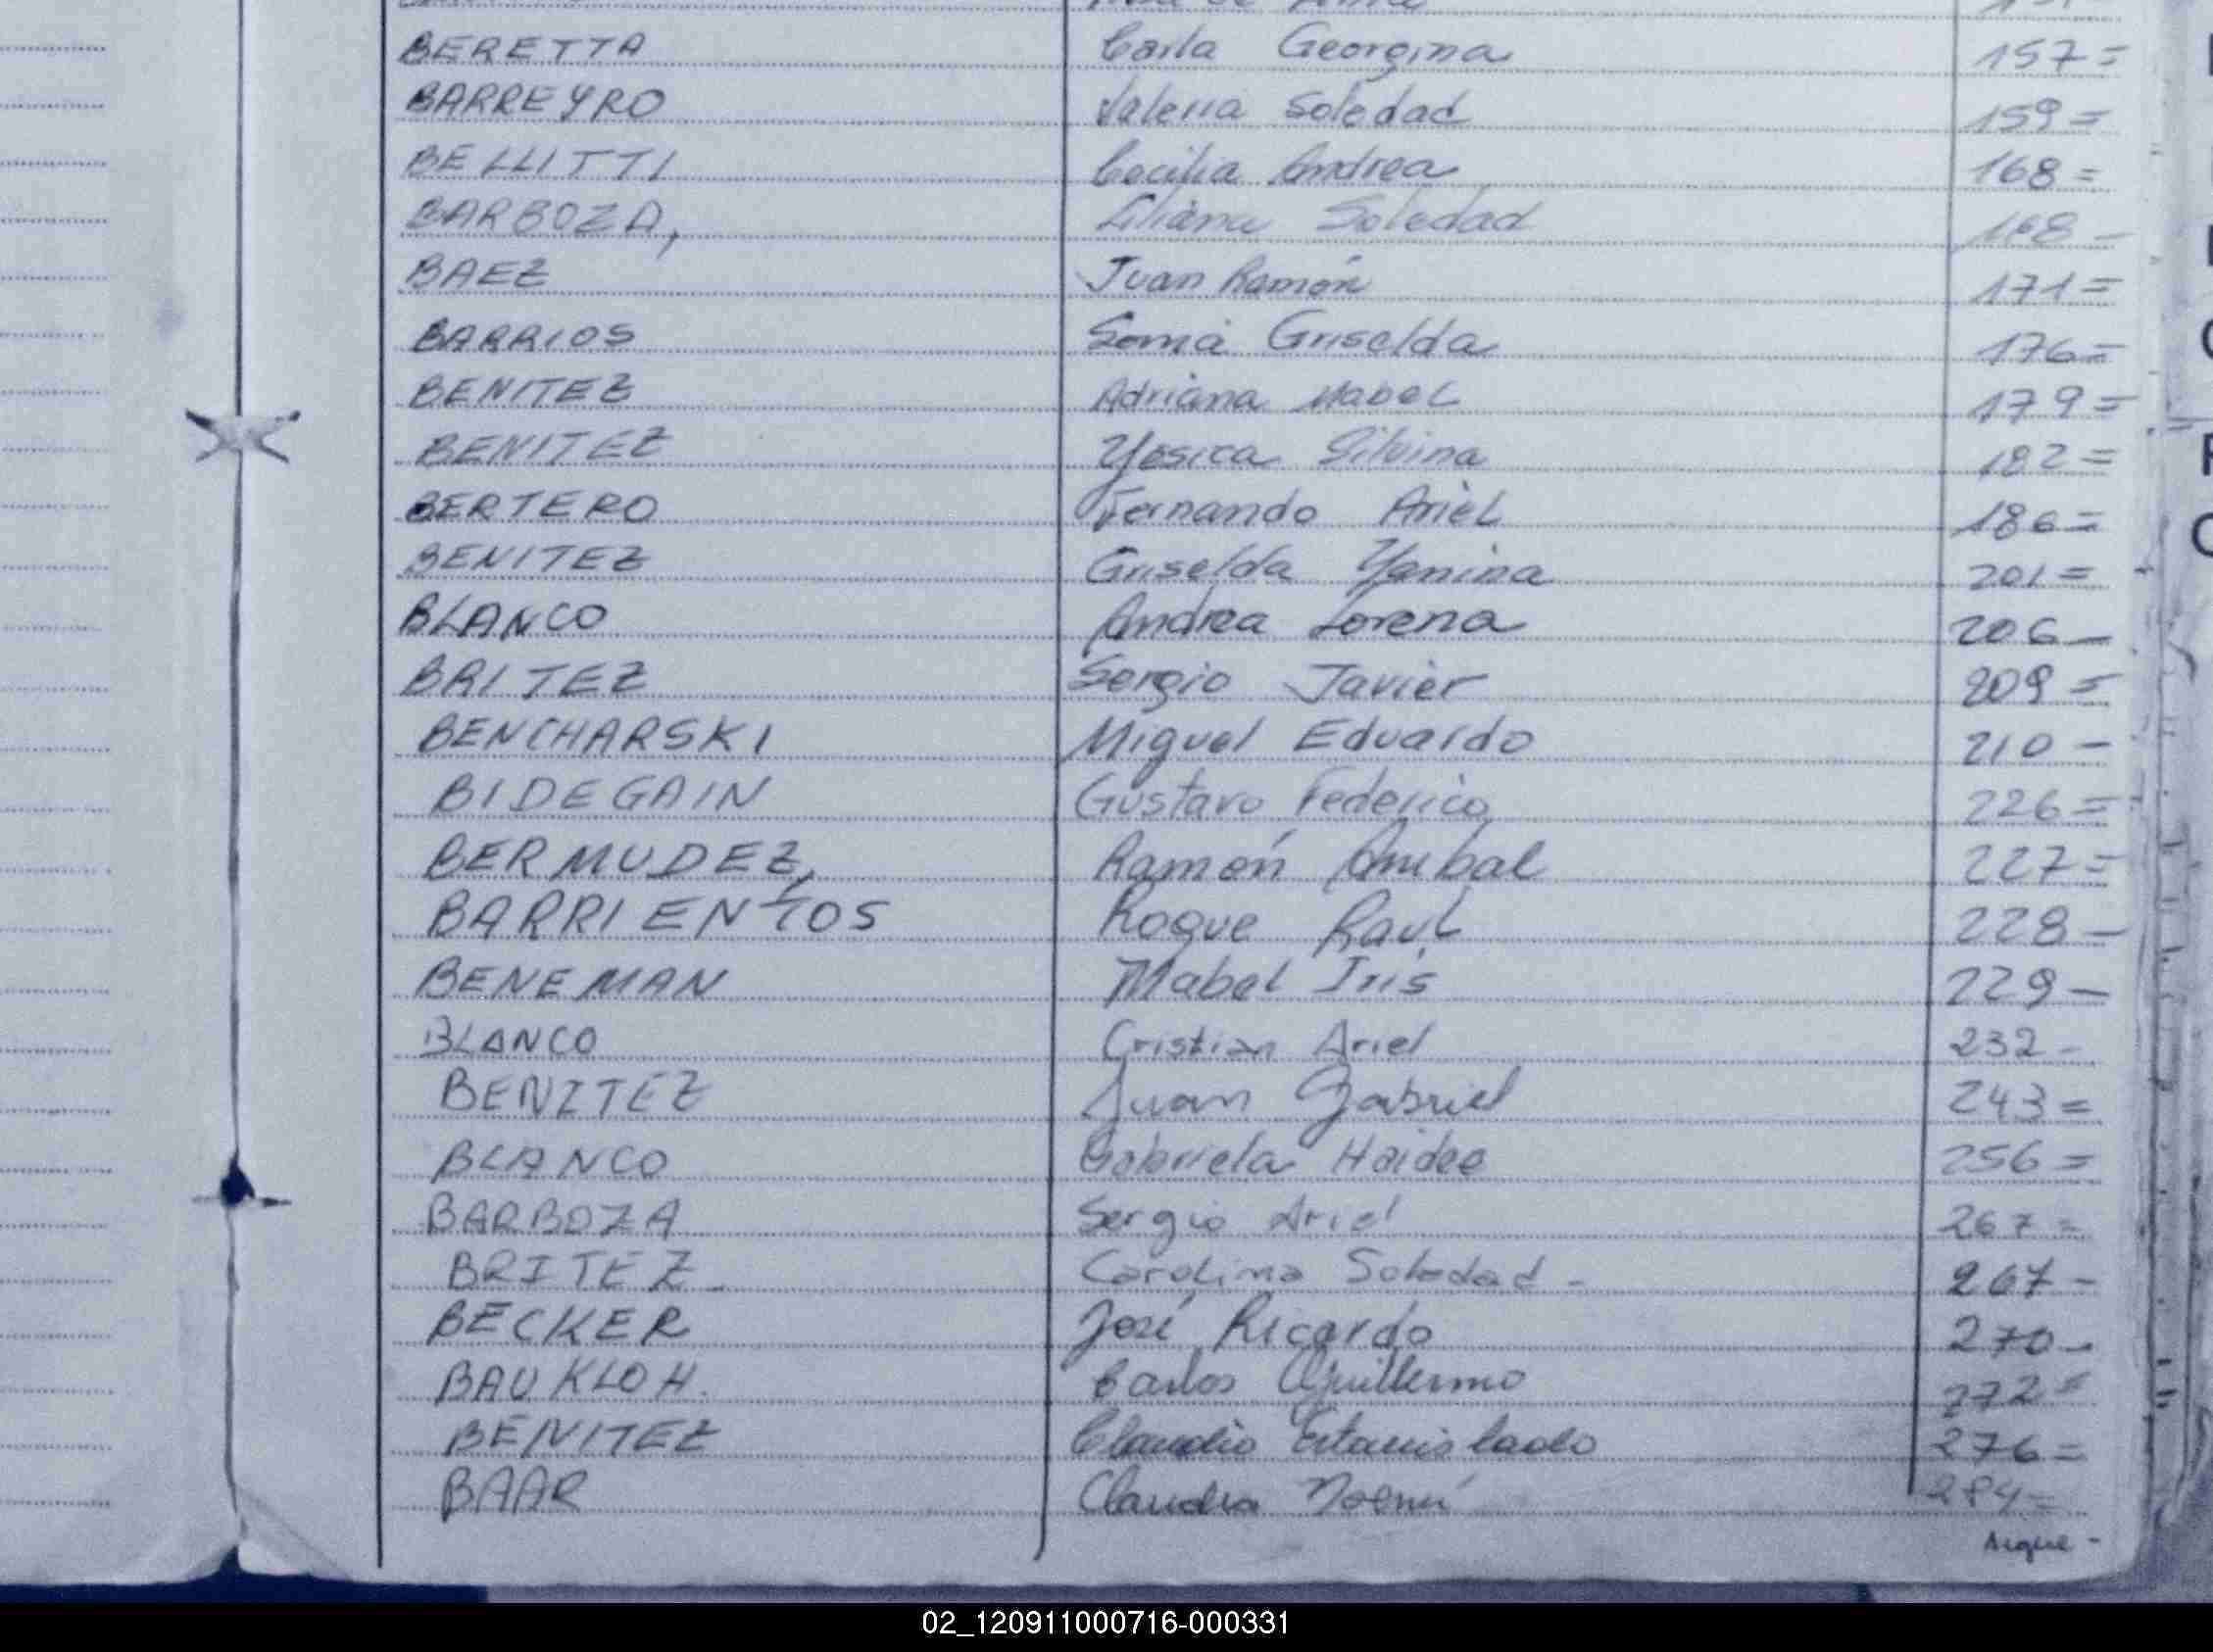 BERETTA Carla Georgina 157=
BARREYRO Valeria Soledad 159=
BELLITTI Cecilia Andrea 168=
BARBOZA, Liliana Soledad 168-
BAEZ Juan Ramón 171=
BARRIOS Sonia Griselda 176=
BENITEZ Adriana Mabel 179=
BENITEZ Yesica Silvina 182=
BERTERO Fernando Ariel 186=
BENITEZ Griselda Yanina 201=
BLANCO Andrea Lorena 206-
BRITEZ Sergio Javier 209=
BENCHARSKI Miguel Eduardo 210-
BIDEGAIN Gustavo Federico 226=
BERMUDEZ, Ramón Anibal 227=
BARRIENTOS Roque Raúl 228-
BENEMAN Mabel Iris 229-
BLANCO Cristian Ariel 232-
BENITEZ Juan Gabriel 243=
BLANCO Gabriela Haidee 256=
BARBOZA Sergio Ariel 267=
BRITEZ - Carolina Soledad - 267-
BECKER José Ricardo 270-
BAUKLOH. Carlos Guillermo 272=
BENITEZ Claudio Estanislado 276=
BAAR Claudia Noemí 284=
sigue -
02_120911000716-000331